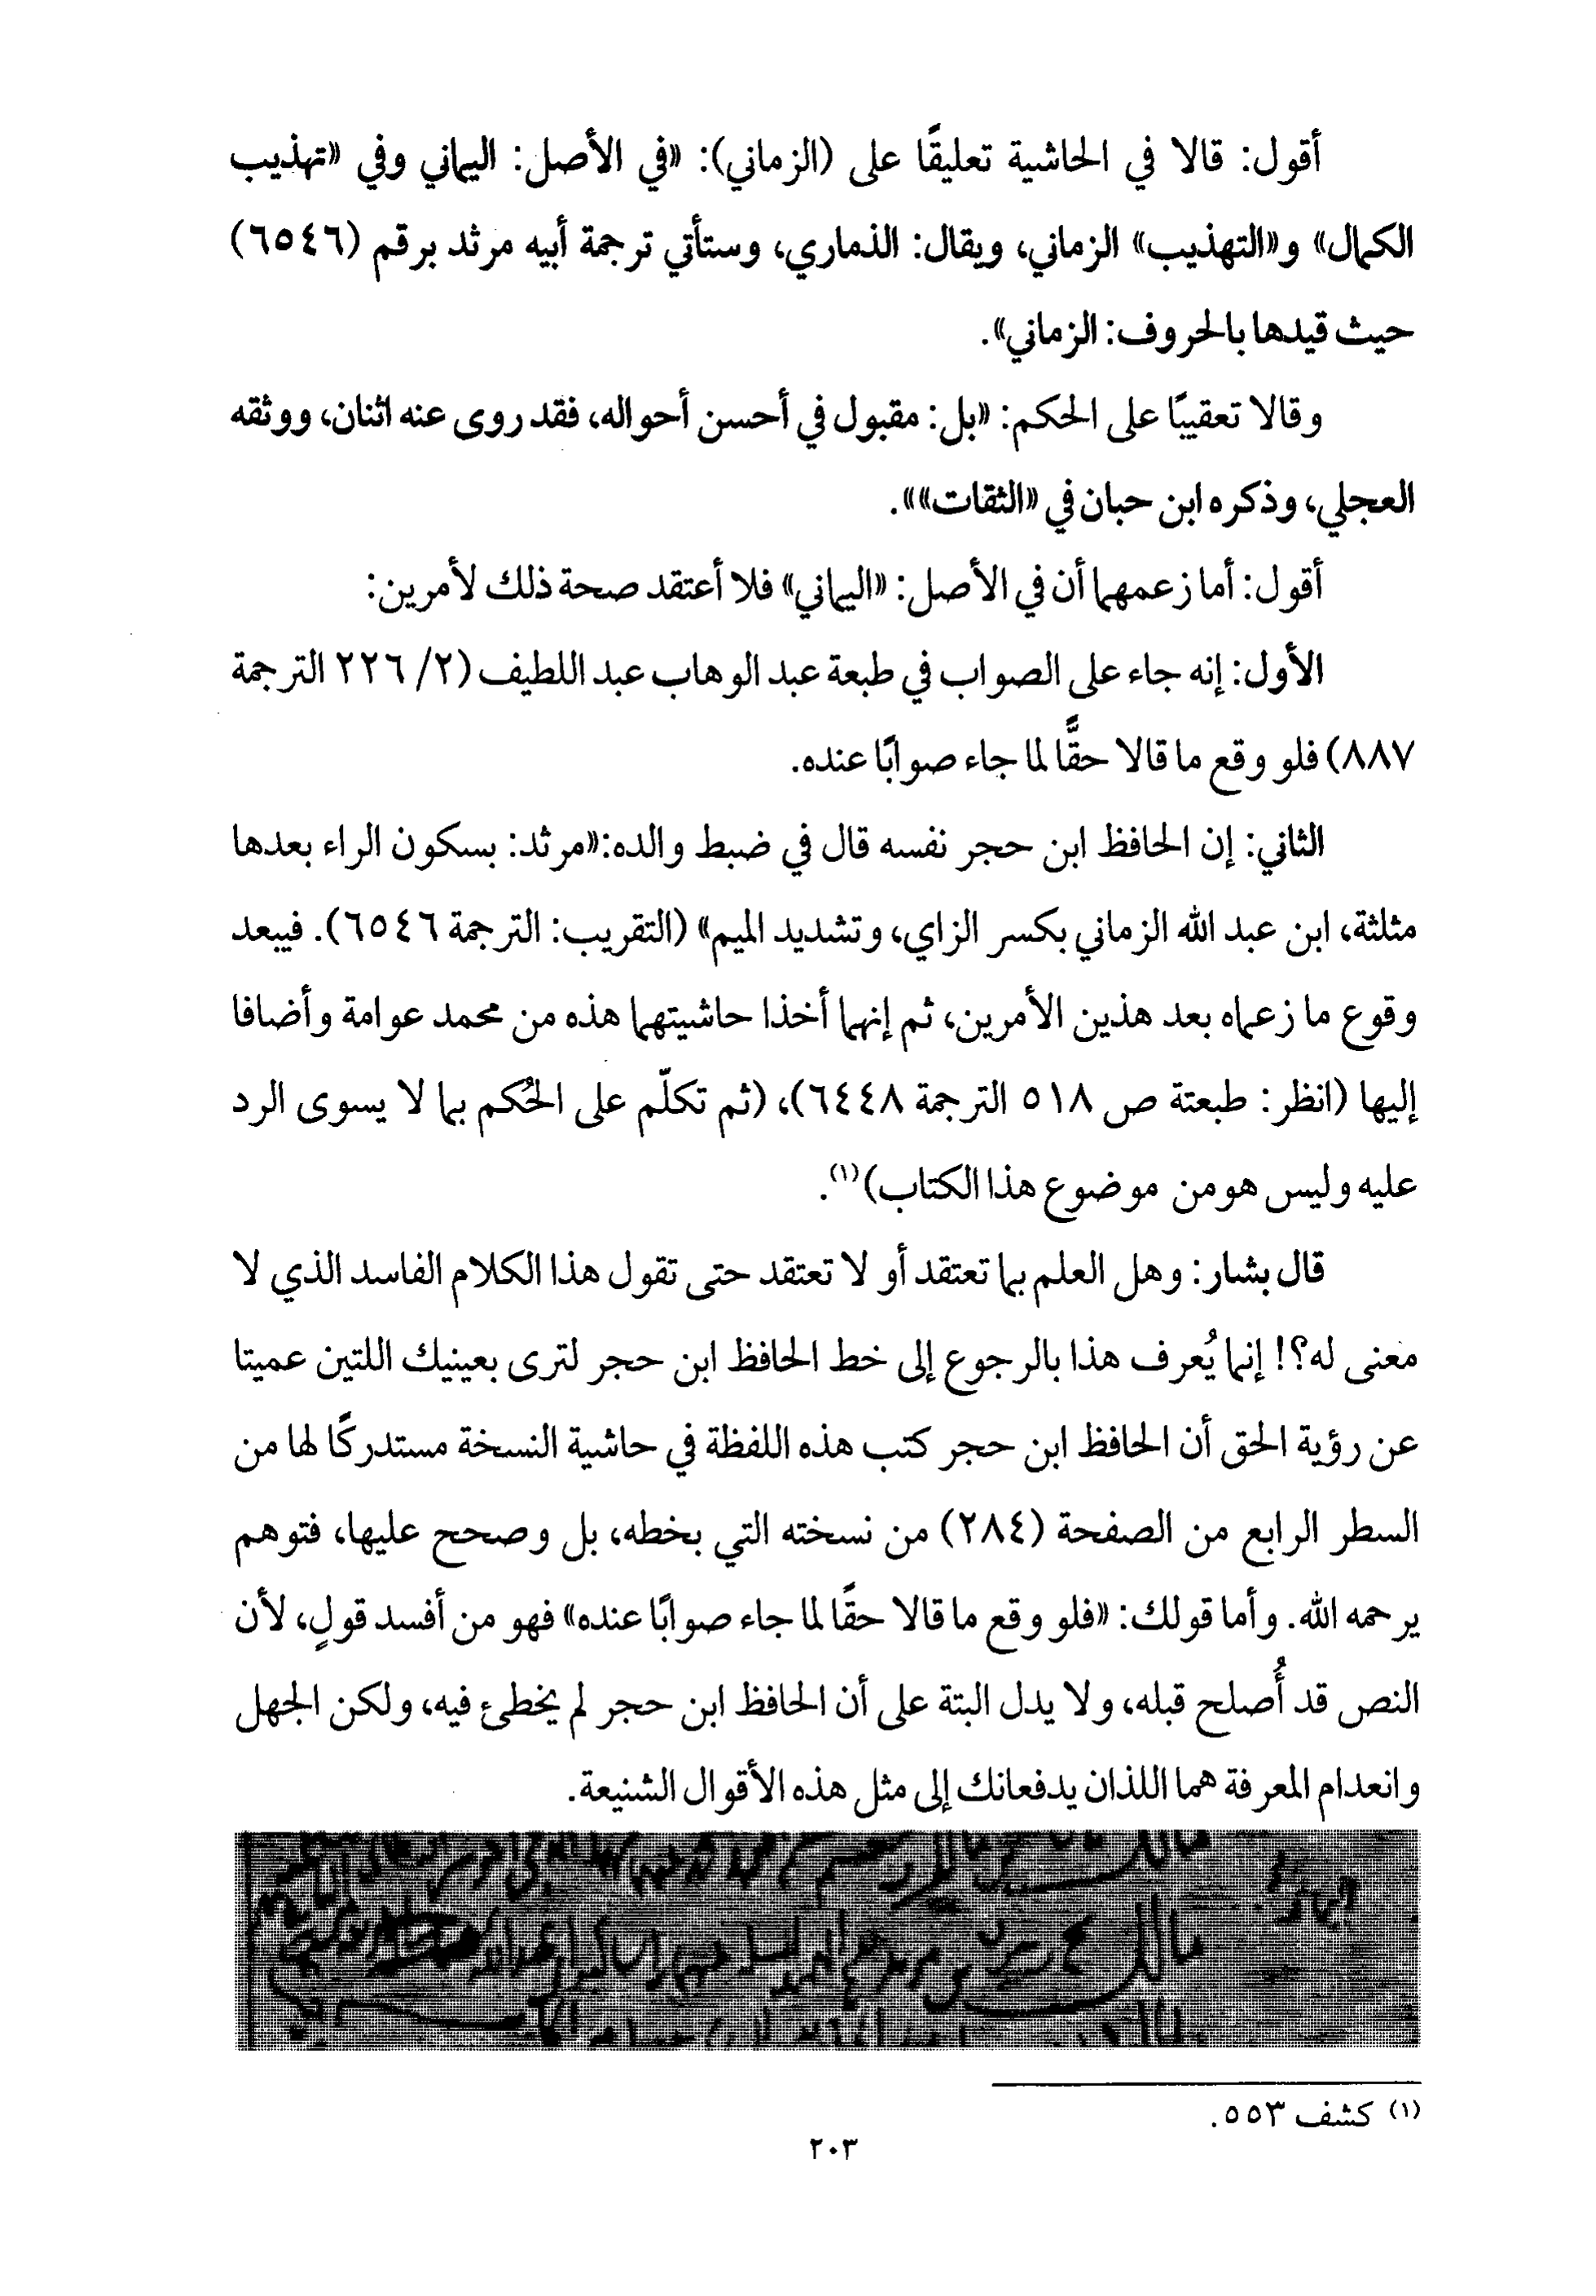 أقول: قالا في الحاشية تعليقًا على (الزماني): «في الأصل: اليماني وفي «تهذيب
الكمال» و«التهذيب» الزماني، ويقال: الذماري، وستأتي ترجمة أبيه مرثد برقم (٦٥٤٦)
حيث قيدها بالحروف: الزماني».
وقالا تعقيبًا على الحكم: «بل: مقبول في أحسن أحواله، فقد روى عنه اثنان، ووثقه
العجلي، وذكره ابن حبان في «الثقات»».
أقول: أما زعمهما أن في الأصل: «اليماني» فلا أعتقد صحة ذلك لأمرين:
الأول: إنه جاء على الصواب في طبعة عبد الوهاب عبد اللطيف (٢/ ٢٢٦ الترجمة
٨٨٧) فلو وقع ما قالا حقًّا لما جاء صوابًا عنده.
الثاني: إن الحافظ ابن حجر نفسه قال في ضبط والده:«مرثد: بسكون الراء بعدها
مثلثة، ابن عبد الله الزماني بكسر الزاي، وتشديد الميم» (التقريب: الترجمة ٦٥٤٦). فيبعد
وقوع ما زعماه بعد هذين الأمرين، ثم إنهما أخذا حاشيتهما هذه من محمد عوامة وأضافا
إليها (انظر: طبعتة ص ٥١٨ الترجمة ٦٤٤٨)، (ثم تكلّم على الحُكم بما لا يسوى الرد
عليه وليس هو من موضوع هذا الكتاب)(١).
قال بشار: وهل العلم بما تعتقد أو لا تعتقد حتى تقول هذا الكلام الفاسد الذي لا
معنى له؟! إنما يُعرف هذا بالرجوع إلى خط الحافظ ابن حجر لترى بعينيك اللتين عميتا
عن رؤية الحق أن الحافظ ابن حجر كتب هذه اللفظة في حاشية النسخة مستدركًا لها من
السطر الرابع من الصفحة (٢٨٤) من نسخته التي بخطه، بل وصحح عليها، فتوهم
يرحمه الله. وأما قولك: «فلو وقع ما قالا حقًا لما جاء صوابًا عنده» فهو من أفسد قولٍ، لأن
النص قد أُصلح قبله، ولا يدل البتة على أن الحافظ ابن حجر لم يخطئ فيه، ولكن الجهل
وانعدام المعرفة هما اللذان يدفعانك إلى مثل هذه الأقوال الشنيعة.
(١) كشف ٥٥٣.
٢٠٣